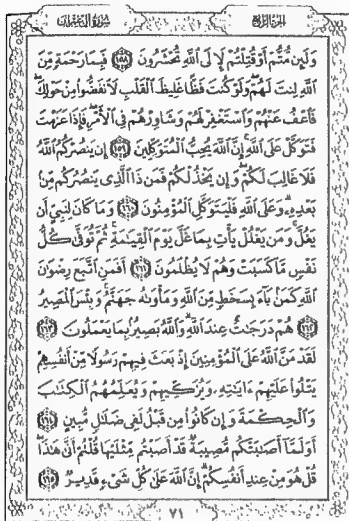 سُورَةُ آلِ عِمْرَان الجزء الرابع
وَلَئِن مُّتُّمْ أَوْ قُتِلْتُمْ لَإِلَى ٱللَّهِ تُحْشَرُونَ ١٥٨ فَبِمَا رَحْمَةٍ مِّنَ
ٱللَّهِ لِنتَ لَهُمْ وَلَوْ كُنتَ فَظًّا غَلِيظَ ٱلْقَلْبِ لَٱنفَضُّوا۟ مِنْ حَوْلِكَ
فَٱعْفُ عَنْهُمْ وَٱسْتَغْفِرْ لَهُمْ وَشَاوِرْهُمْ فِى ٱلْأَمْرِ فَإِذَا عَزَمْتَ
فَتَوَكَّلْ عَلَى ٱللَّهِ إِنَّ ٱللَّهَ يُحِبُّ ٱلْمُتَوَكِّلِينَ ١٥٩ إِن يَنصُرْكُمُ ٱللَّهُ
فَلَا غَالِبَ لَكُمْ وَإِن يَخْذُلْكُمْ فَمَن ذَا ٱلَّذِى يَنصُرُكُم مِّنۢ
بَعْدِهِۦ وَعَلَى ٱللَّهِ فَلْيَتَوَكَّلِ ٱلْمُؤْمِنُونَ ١٦٠ وَمَا كَانَ لِنَبِىٍّ أَن
يَغُلَّ وَمَن يَغْلُلْ يَأْتِ بِمَا غَلَّ يَوْمَ ٱلْقِيَـٰمَةِ ثُمَّ تُوَفَّىٰ كُلُّ
نَفْسٍ مَّا كَسَبَتْ وَهُمْ لَا يُظْلَمُونَ ١٦١ أَفَمَنِ ٱتَّبَعَ رِضْوَٰنَ
ٱللَّهِ كَمَنۢ بَآءَ بِسَخَطٍ مِّنَ ٱللَّهِ وَمَأْوَىٰهُ جَهَنَّمُ وَبِئْسَ ٱلْمَصِيرُ
١٦٢ هُمْ دَرَجَـٰتٌ عِندَ ٱللَّهِ وَٱللَّهُ بَصِيرٌۢ بِمَا يَعْمَلُونَ ١٦٣
لَقَدْ مَنَّ ٱللَّهُ عَلَى ٱلْمُؤْمِنِينَ إِذْ بَعَثَ فِيهِمْ رَسُولًا مِّنْ أَنفُسِهِمْ
يَتْلُوا۟ عَلَيْهِمْ ءَايَـٰتِهِۦ وَيُزَكِّيهِمْ وَيُعَلِّمُهُمُ ٱلْكِتَـٰبَ
وَٱلْحِكْمَةَ وَإِن كَانُوا۟ مِن قَبْلُ لَفِى ضَلَـٰلٍ مُّبِينٍ ١٦٤
أَوَلَمَّآ أَصَـٰبَتْكُم مُّصِيبَةٌ قَدْ أَصَبْتُم مِّثْلَيْهَا قُلْتُمْ أَنَّىٰ هَـٰذَا
قُلْ هُوَ مِنْ عِندِ أَنفُسِكُمْ إِنَّ ٱللَّهَ عَلَىٰ كُلِّ شَىْءٍ قَدِيرٌ ١٦٥
٧١